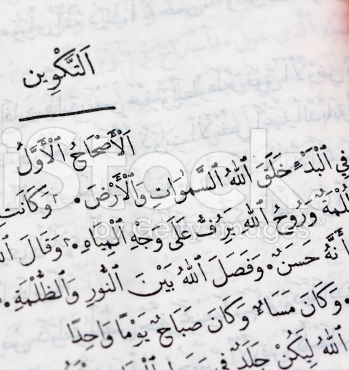 اَلتَّكْوِين
اَلْأَصْحَاحُ ٱلْأَوَّلُ
فِي ٱلْبَدْءِ خَلَقَ ٱللهُ ٱلسَّمَوَاتِ وَٱلْأَرْضَ. وَكَانَتِ
ظُلْمَةٌ وَرُوحُ ٱللهِ يَرِفُّ عَلَى وَجْهِ ٱلْمِيَاهِ. وَقَالَ
أَنَّهُ حَسَنٌ. وَفَصَلَ ٱللهُ بَيْنَ ٱلنُّورِ وَٱلظُّلْمَةِ.
وَكَانَ مَسَاءٌ وَكَانَ صَبَاحٌ يَوْمًا وَاحِدًا
ٱللهُ لِيَكُنْ جَلَدٌ فِي
iStock
by Getty Images